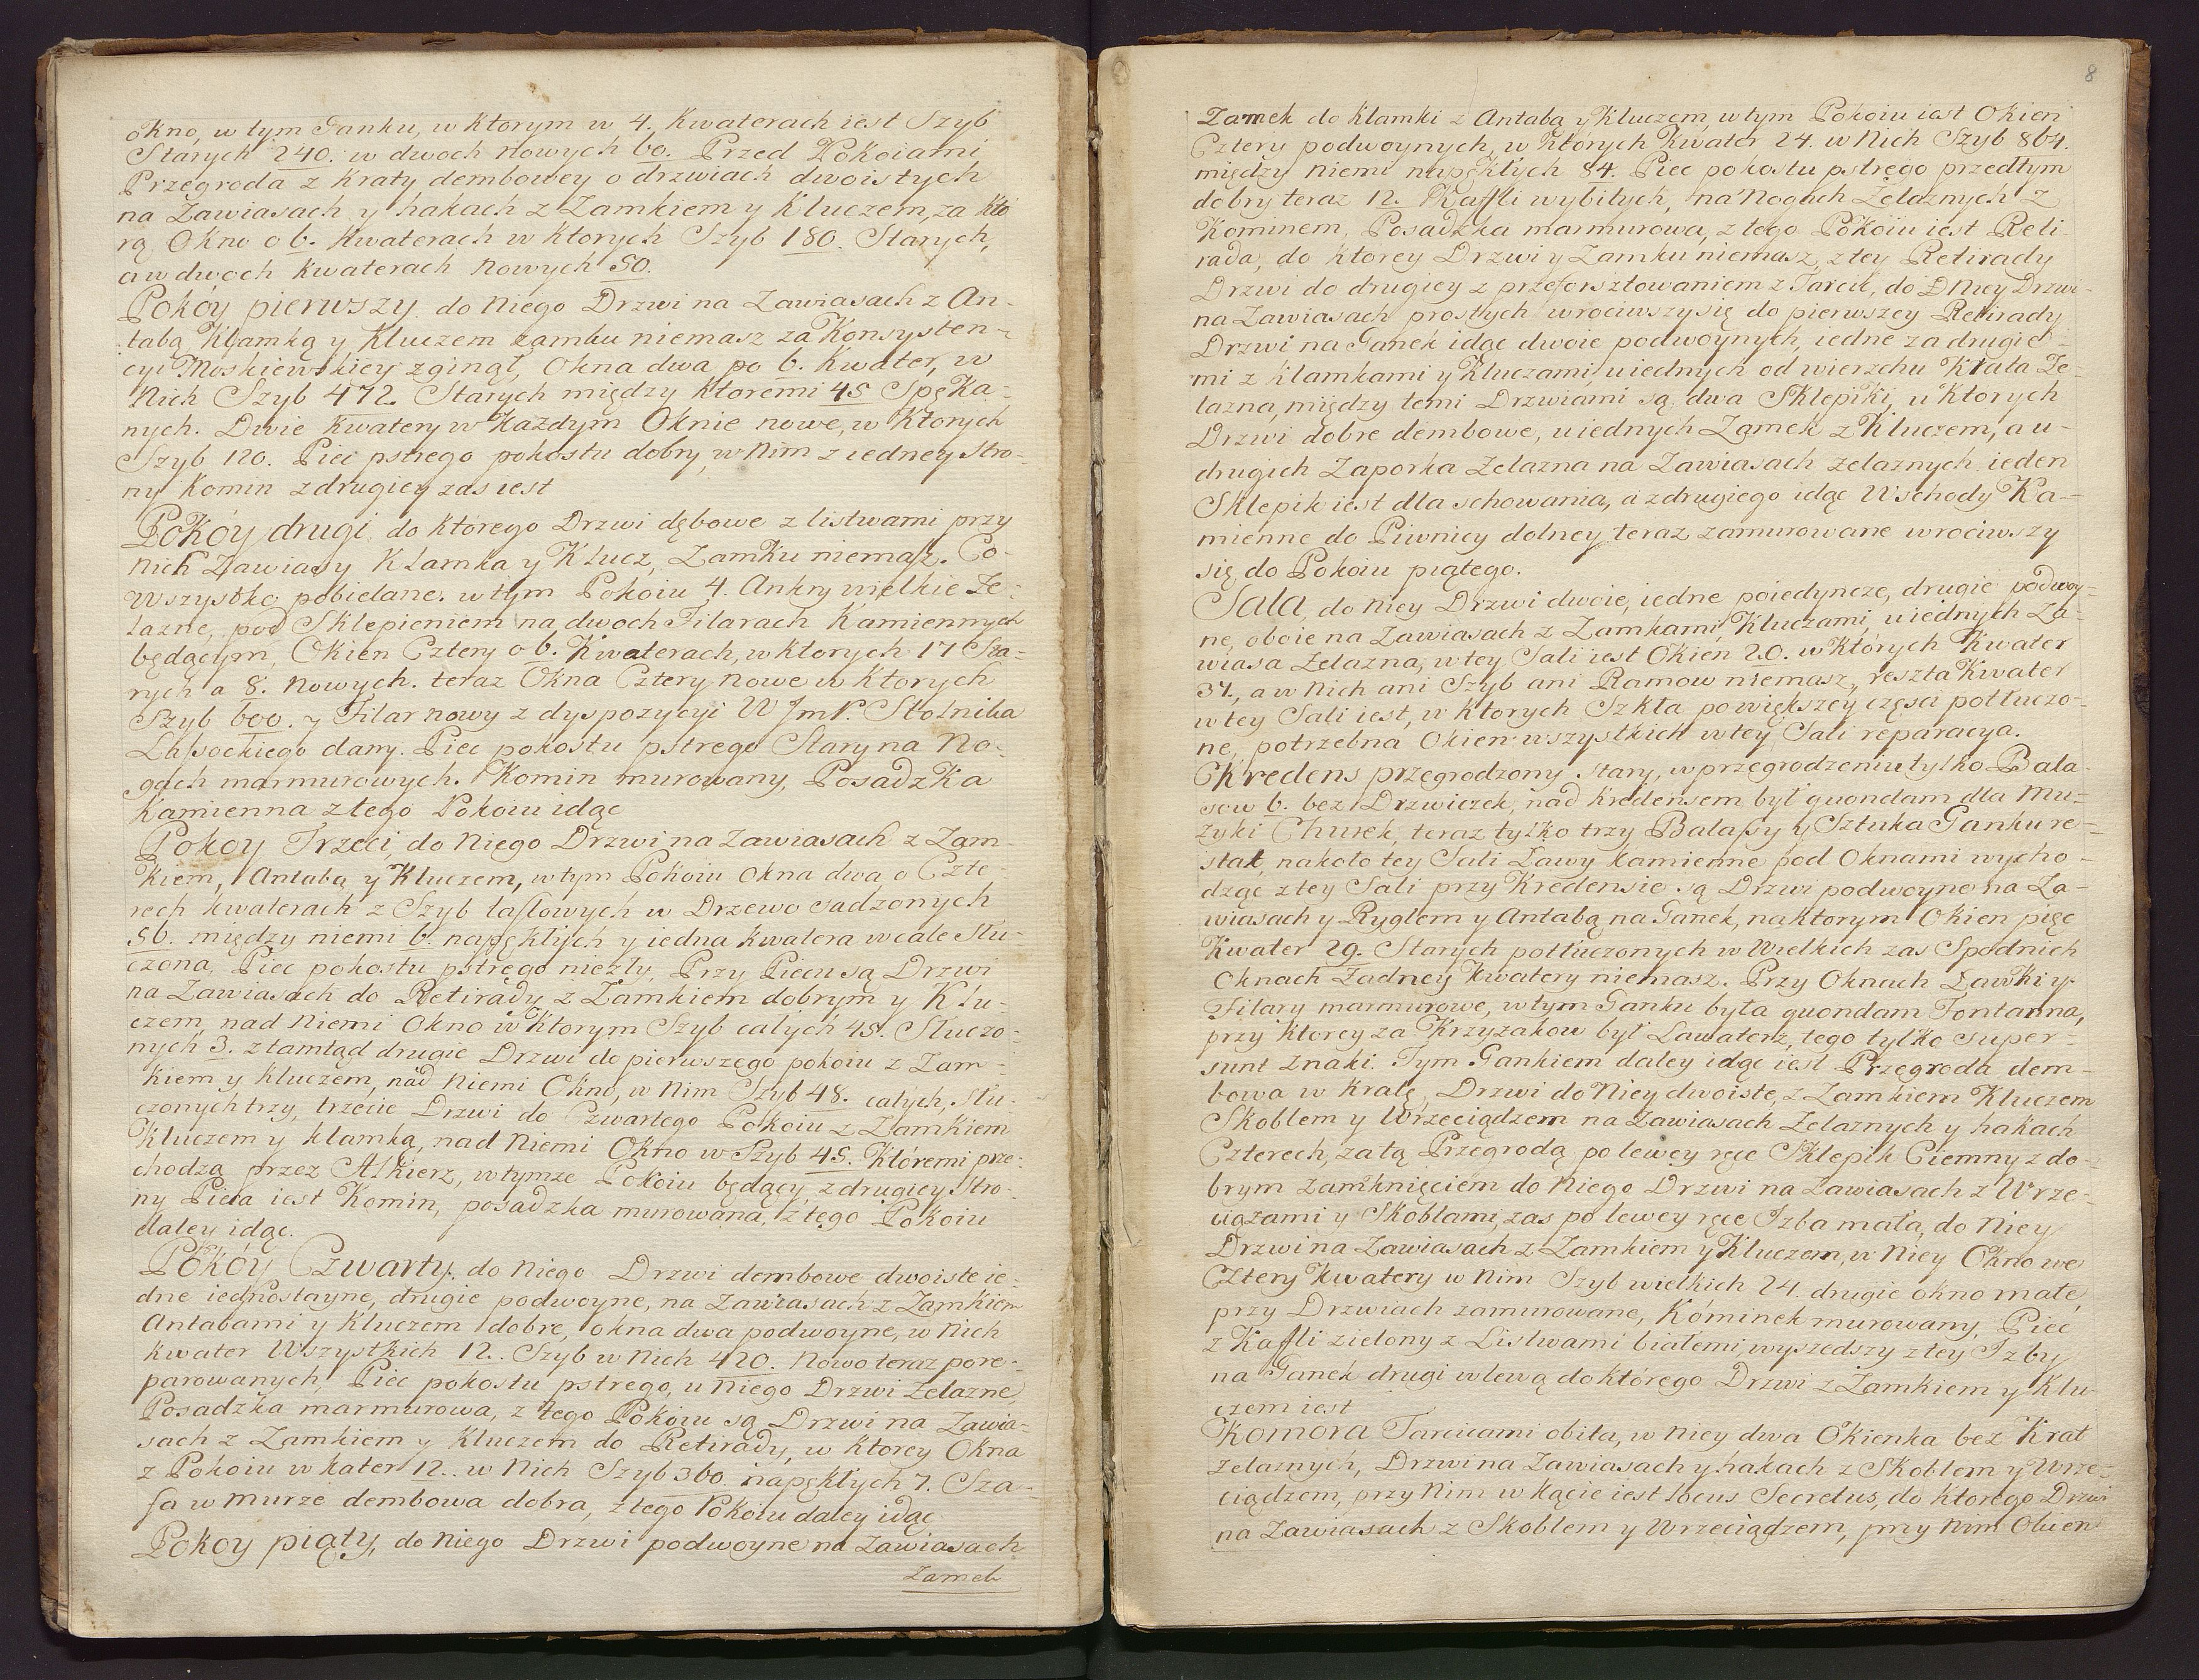 okno, w tym Ganku, w ktorym w 4. Kwaterach iest Szyb
Starych 240. w dwoch nowych 60. Przed Pokoiami
Przegroda z Kraty dembowey o drzwiach dwoistych
na Zawiasach y hakach z Zamkiem y Kluczem, za kto
rą Okno o 6. Kwaterach w ktorych Szyb 180. Starych,
a w dwoch kwaterach Nowych 50.
Pokóy pierwszy, do Niego Drzwi na Zawiasach z An-
tabą Klamką y Kluczem zamku niemasz za Konsysten-
cyi Moskiewskiey zginął, Okna dwa po 6. Kwater, w
Nich Szyb 472. Starych między ktoremi 45 Spęka-
nych. Dwie Kwatery w Każdym Oknie nowe, w Ktorych
Szyb 120. Piec pstrego pokostu dobry, w Nim z iedney Stro-
ny Komin z drugiey zas iest
Pokóy drugi, do którego Drzwi dębowe z listwami przy
Nich Zawiasy Klamka y Klucz, Zamku niemasz. Co
Wszystko pobielane. w tym Pokoiu 4. Ankry wielkie Że-
lazne, pod Sklepieniem na dwoch Filarach Kamiennych
będącym, Okien Cztery o 6. Kwaterach, w ktorych 17 Sta-
rych a 8. Nowych. teraz Okna Cztery Nowe w Ktorych
Szyb 600. y Filar nowy z dyspozycyi W Jmć P. Stolnika
Lassockiego dany. Piec pokostu pstrego Stary na No-
gach marmurowych. Komin murowany, Posadzka
Kamienna z tego Pokoiu idąc
Pokoy Trzeci, do Niego Drzwi na Zawiasach z Zam-
kiem, Antabą y Kluczem, w tym Pokoiu Okna dwa o Czte-
rech kwaterach z Szyb taflowych w Drzewo sadzonych
56. między niemi 6. napękłych y iedna kwatera wcale Stu-
czona, Piec pokostu pstrego niezły, Przy Piecu są Drzwi
na Zawiasach do Retirady z Zamkiem dobrym y Klu-
czem, nad Niemi Okno w Ktorym Szyb całych 45. Stuczo-
nych 3. ztamtąd drugie Drzwi do pierwszego pokoiu z Zam-
kiem y kluczem, nad Niemi Okno, w Nim Szyb 48. całych, Stu-
czonych trzy, trzecie Drzwi do Czwartego Pokoiu z Zamkiem
Kluczem y klamką, nad Niemi Okno w Szyb 45. Któremi prze-
chodzą przez Alkierz, w tymze Pokoiu będący, z drugiey Stro-
ny Pieca iest Komin, posadzka murowana, z tego Pokoiu
daley idąc.
Pokóy Czwarty. do Niego Drzwi dembowe dwoiste ie-
dne iednostayne, drugie podwoyne, na Zawiasach z Zamkiem
Antabami y Kluczem dobre, okna dwa podwoyne, w Nich
kwater Wszystkich 12. Szyb w Nich 420. Nowo teraz pore-
parowanych, Piec pokostu pstrego, u Niego Drzwi Żelazne,
Posadzka marmurowa, z tego Pokoiu są Drzwi na Zawia-
sach z Zamkiem y Kluczem do Retirady, w ktorey Okna
z Pokoiu w kater 12. w Nich Szyb 360 napękłych 7. Sza-
fa w Murze dembowa dobra, z tego Pokoiu daley idąc
Pokoy piąty, do Niego Drzwi podwoyne na Zawiasach
Zamek
8
Zamek do Klamki z Antabą y Kluczem, w tym Pokoiu iest Okien
Cztery podwoynych, w Których Kwater 24. w Nich Szyb 864.
między Niemi napękłych 84. Piec pokostu pstrego przedtym
dobry teraz 12. Kafli wybitych, na Nogach Żelaznych z
Kominem, Posadzka marmurowa, z tego Pokoiu iest Reti-
rada, do Ktorey Drzwi y Zamku niemasz, z tey Retirady
Drzwi do drugiey z przeforsztowaniem z Tarcic, do Niey Drzwi
na Zawiasach prostych wrociwszy się do pierwszey Retirady
Drzwi na Ganek idąc dwoie podwoynych, iedne za drugie-
mi z klamkami y Kluczami, u iednych od wierzchu Krata Że-
lazna, między temi Drzwiami są dwa Sklepiki, u Ktorych
Drzwi dobre dembowe, u iednych Zamek z Kluczem, a u-
drugich Zaporka Żelazna na Zawiasach żelaznych ieden
Sklepik iest dla schowania, a z drugiego idąc Wschody Ka-
mienne do Piwnicy dolney teraz zamurowane wrociwszy
się do Pokoiu piątego.
Sala, do Niey Drzwi dwoie, iedne poiedyncze, drugie podwoy-
ne, oboie na Zawiasach z Zamkami, Kluczami, u iednych Za-
wiasa Żelazna, w tey Sali iest Okien 20. w Których Kwater
34., a w Nich ani Szyb ani Ramow niemasz, reszta Kwater
w tey Sali iest, w ktorych Szkła powiększey częsci potłuczo-
ne, potrzebna Okien wszystkich w tey Sali reparacya.
Kredens przegrodzony stary, w przegrodzeniu tylko Bala-
sow 6. bez Drzwiczek, nad Kredensem był quondam dla Mu-
zyki Churek, teraz tylko trzy Balasy y Sztuka Ganku re-
stat, nakoło tey Sali Ławy kamienne pod Oknami wycho-
dząc z tey Sali przy Kredensie są Drzwi podwoyne na Za-
wiasach y Ryglem y Antabą na Ganek, na ktorym Okien pięć
Kwater 29. Starych potłuczonych w Wielkich zas Spodnich
Oknach Żadney Kwatery niemasz. Przy Oknach Ławki y
Filary marmurowe, w tym Ganku była quondam Fontanna,
przy ktorey za Krzyżakow był Lawaterz, tego tylko super-
sunt Znaki. Tym Gankiem daley idąc iest Przegroda dem-
bowa w Kratę, Drzwi do Niey dwoiste, z Zamkiem Kluczem
Skoblem y Wrzeciądzem na Zawiasach Żelaznych y hakach
Czterech, za tą Przegrodą po lewey ręce Sklepik Ciemny z do-
brym Zamknięciem do Niego Drzwi na Zawiasach z Wrze-
ciązami y Skoblami, zas po lewey ręce Izba mała, do Niey
Drzwi na Zawiasach z Zamkiem y Kluczem, w Niey Okno we
Cztery Kwatery w Nim Szyb wielkich 24. drugie okno małe,
przy Drzwiach zamurowane, Kóminek murowany, Piec
z Kafli zielony z Listwami białemi, wyszedszy z tey Izby
na Ganek drugi w lewą do którego Drzwi z Zamkiem y Klu
czem iest
Komora Tarcicami obita, w Niey dwa Okienka bez Krat
żelaznych, Drzwi na Zawiasach y hakach z Skoblem y Wrze-
ciądzem, przy Nim w kącie iest locus Secretus, do ktorego Drzwi
na Zawiasach z Skoblem y Wrzeciądzem, przy Nim Okien